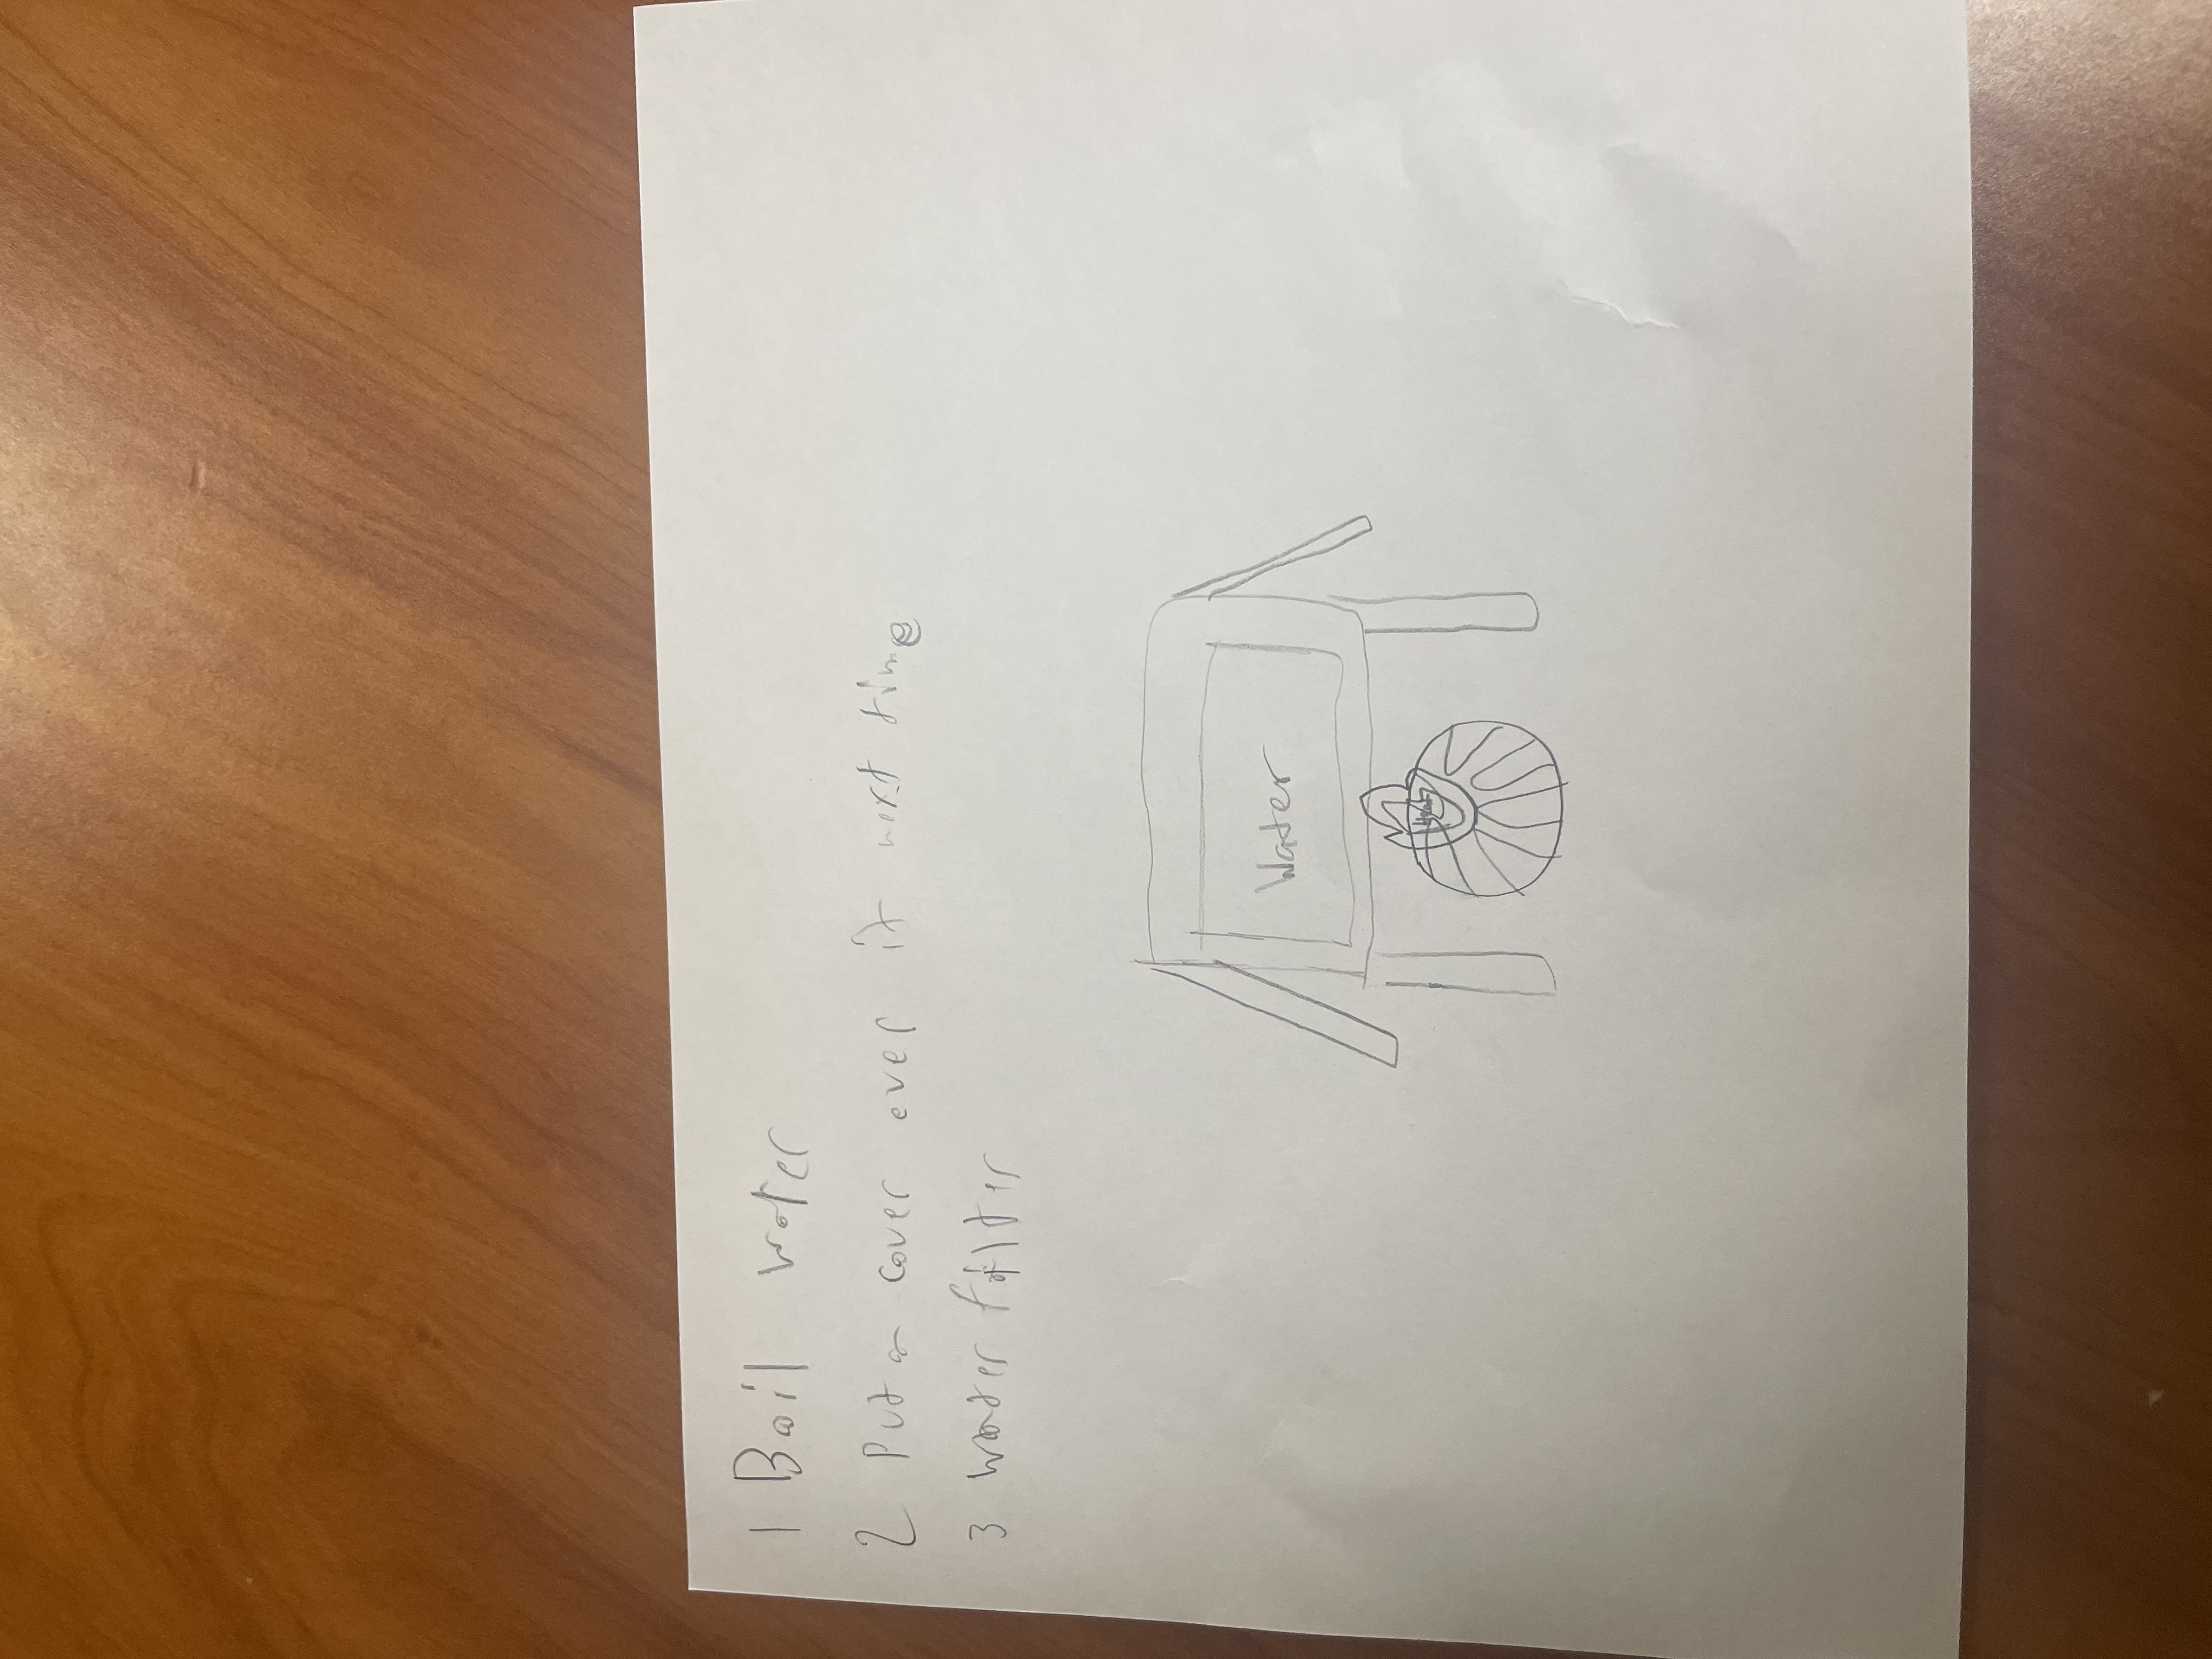 1 Boil water
2 Put a cover over it next time
3 water filter
Water
Heat